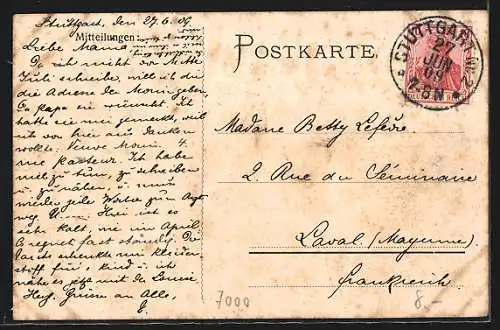 Stuttgart, den 27.6.09.
Mitteilungen:
Liebe Mama,
Da ich nicht vor Mitte
Juli schreibe, will ich dir
die Adresse der Monin geben,
Papa sie wünscht. Ich
hatte sie mir gemerkt, weil
ich von hier aus danken
wollte: Veuve Monin. 4.
rue Pasteur. Ich habe
viel zu tun, zu schreiben
u. zu nähen, u. muss
wieder viele Wochen zum
weg. Hier ist es
sehr kalt, wie im April.
Es regnet fast ständig. Die
Tante schenkte mir Kleider-
stoff für, u. ich
nähe es jetzt mit der Louise
Herz. Grüsse an Alle,
POSTKARTE.
STUTTGART Nr. 2
27
JUN
09
7-8 N
Madame Betty Lefèvre.
2. Rue du Séminaire
Laval. (Mayenne)
Frankreich.
7000
8.-